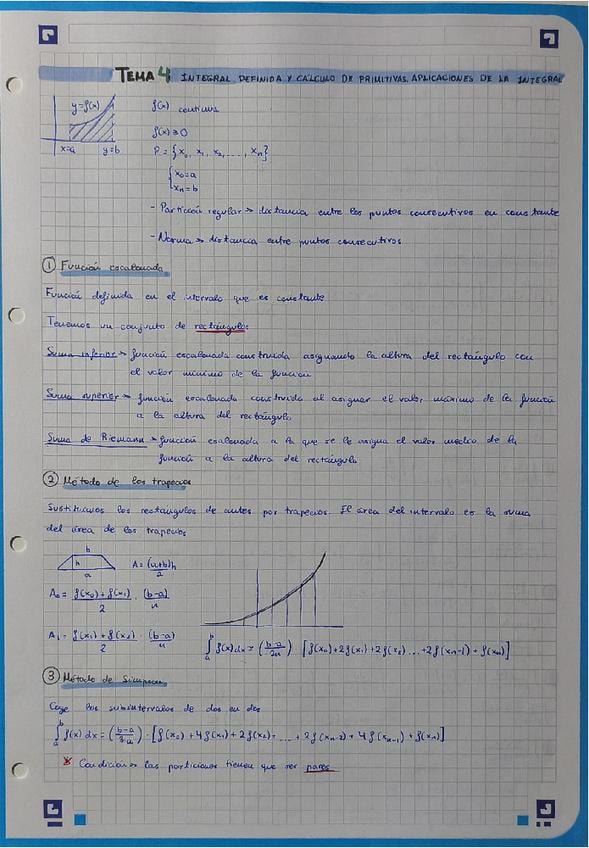 TEMA 4 INTEGRAL DEFINIDA Y CÁLCULO DE PRIMITIVAS. APLICACIONES DE LA INTEGRAL
y=f(x)
x=a y=b
f(x) continua
f(x)≥0
P = {x₀, x₁, x₂, ..., xₙ}
{x₀=a
xₙ=b
- Partición regular → distancia entre los puntos consecutivos en constante
- Norma → distancia entre puntos consecutivos
① Función escalonada
Función definida en el intervalo que es constante
Tenemos un conjunto de rectángulos
Suma inferior → función escalonada construida asignando la altura del rectángulo con
el valor mínimo de la función
Suma superior → función escalonada construida al asignar el valor máximo de la función
a la altura del rectángulo
Suma de Riemann → función escalonada a la que se le asigna el valor medio de la
función a la altura del rectángulo
② Método de los trapecios
Sustituimos los rectángulos de antes por trapecios. El área del intervalo es la suma
del área de los trapecios
b
h
a
A = (a+b)h / 2
A₀ = f(x₀) + f(x₁) / 2 · (b-a) / n
A₁ = f(x₁) + f(x₂) / 2 · (b-a) / n
∫ₐᵇ f(x)dx ≈ (b-a / 2n) [f(x₀) + 2f(x₁) + 2f(x₂) ... + 2f(xn-1) + f(xn)]
③ Método de Simpson
Coge los subintervalos de dos en dos
∫ₐᵇ f(x) dx = (b-a / 3n) · [f(x₀) + 4f(x₁) + 2f(x₂) + ... + 2f(xₙ₋₂) + 4f(xₙ₋₁) + f(xₙ)]
* Condición → las particiones tienen que ser pares